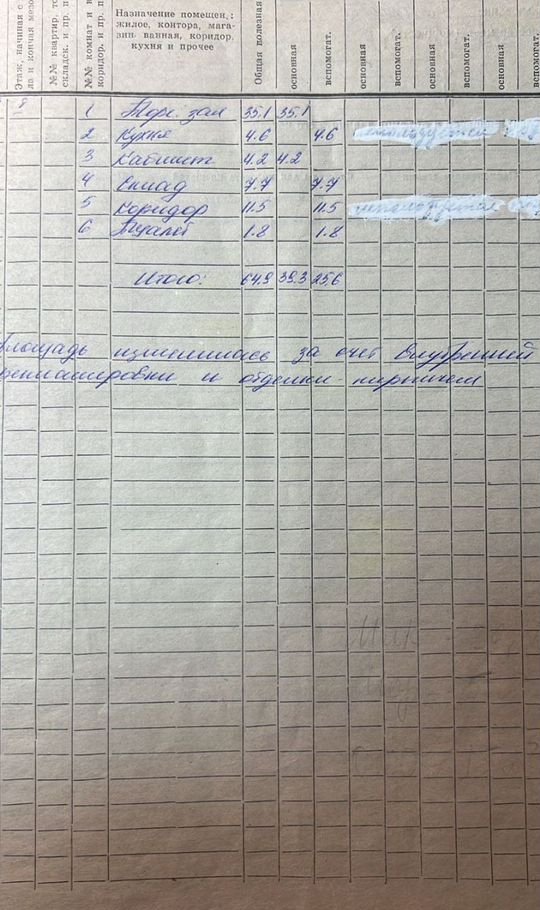 Этаж, начиная с
ла и кончая мезо
№№ квартир, то
складск. и пр. п
№№ комнат и к
коридор. и пр. п
Назначение помещен.:
жилое, контора, мага-
зин. ванная, коридор.
кухня и прочее
Общая полезная
основная
вспомогат.
основная
вспомогат.
основная
вспомогат.
основная
вспомога
1 Торг. зал 35.1 35.1
2 Кухня 4.6 4.6 используется
3 Кабинет 4.2 4.2
4 Склад 7.7 7.7
5 Коридор 11.5 11.5 используется
6 Туалет 1.8 1.8
Итого: 64.9 39.3 25.6
Площадь изменилась за счет внутренней
и отделки кирпичем